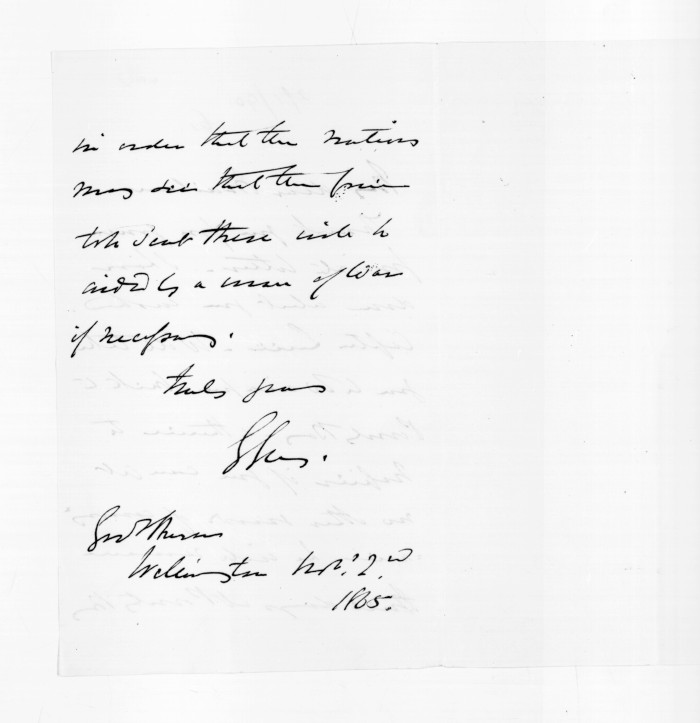 in order that the Natives
may see that the force
to be sent there will be
aided by a man of War
if necessary.
Truly yours
G Grey.
Govt House
Wellington Novr. 2nd
1865.